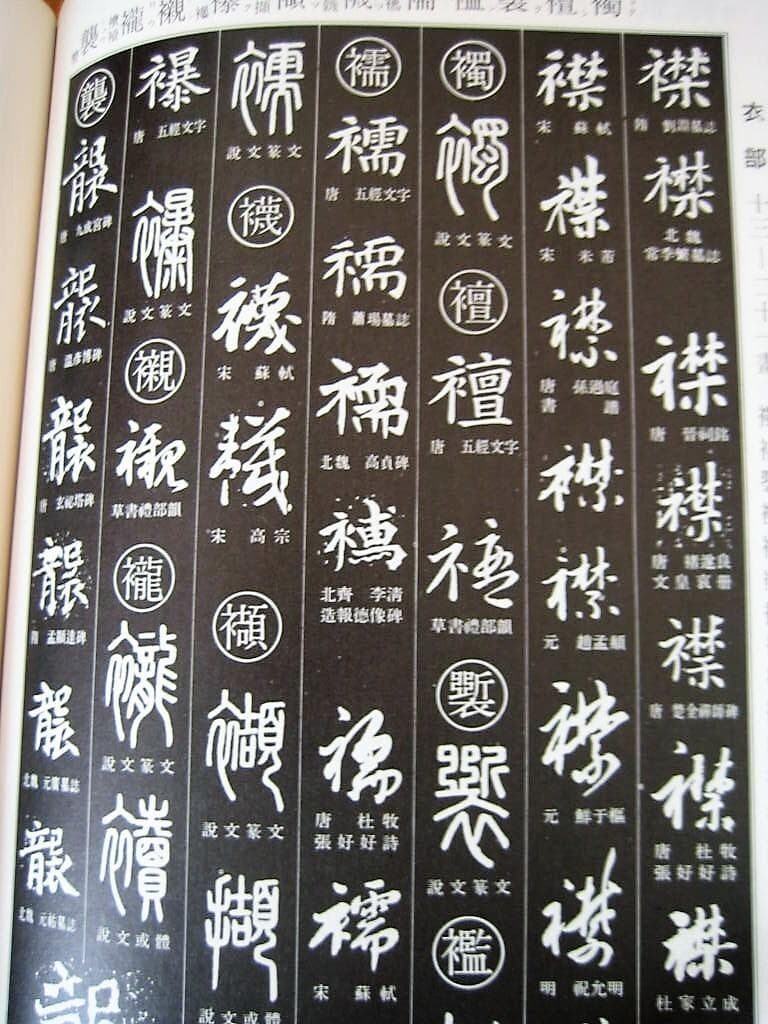 衣部
襟
隋 劉淵墓誌
襟
北魏
常季繁墓誌
襟
唐 晉祠銘
襟
唐 褚遂良
文皇哀册
襟
唐 楚金禪師碑
襟
唐 杜牧
張好好詩
襟
杜家立成
襟
宋 蘇軾
襟
宋 米芾
襟
唐 孫過庭
書譜
襟
襟
元 趙孟頫
襟
元 鮮于樞
襟
明 祝允明
襡
襡
說文篆文
襢
襢
唐 五經文字
襢
草書禮部韻
說文篆文
襤
襦
襦
唐 五經文字
襦
隋 蕭瑒墓誌
襦
北魏 高貞碑
襦
北齊 李清
造報德像碑
襦
唐 杜牧
張好好詩
襦
宋 蘇軾
說文篆文
襪
襪
宋 蘇軾
宋 高宗
襭
襭
說文篆文
擷
說文或體
襮
唐 五經文字
襮
說文篆文
襯
襯
草書禮部韻
襱
襱
說文篆文
襩
說文或體
襲
襲
唐 九成宮碑
襲
唐 溫彥博碑
襲
唐 玄祕塔碑
襲
隋 孟顯達碑
襲
北魏 元廣墓誌
襲
北魏 元祐墓誌